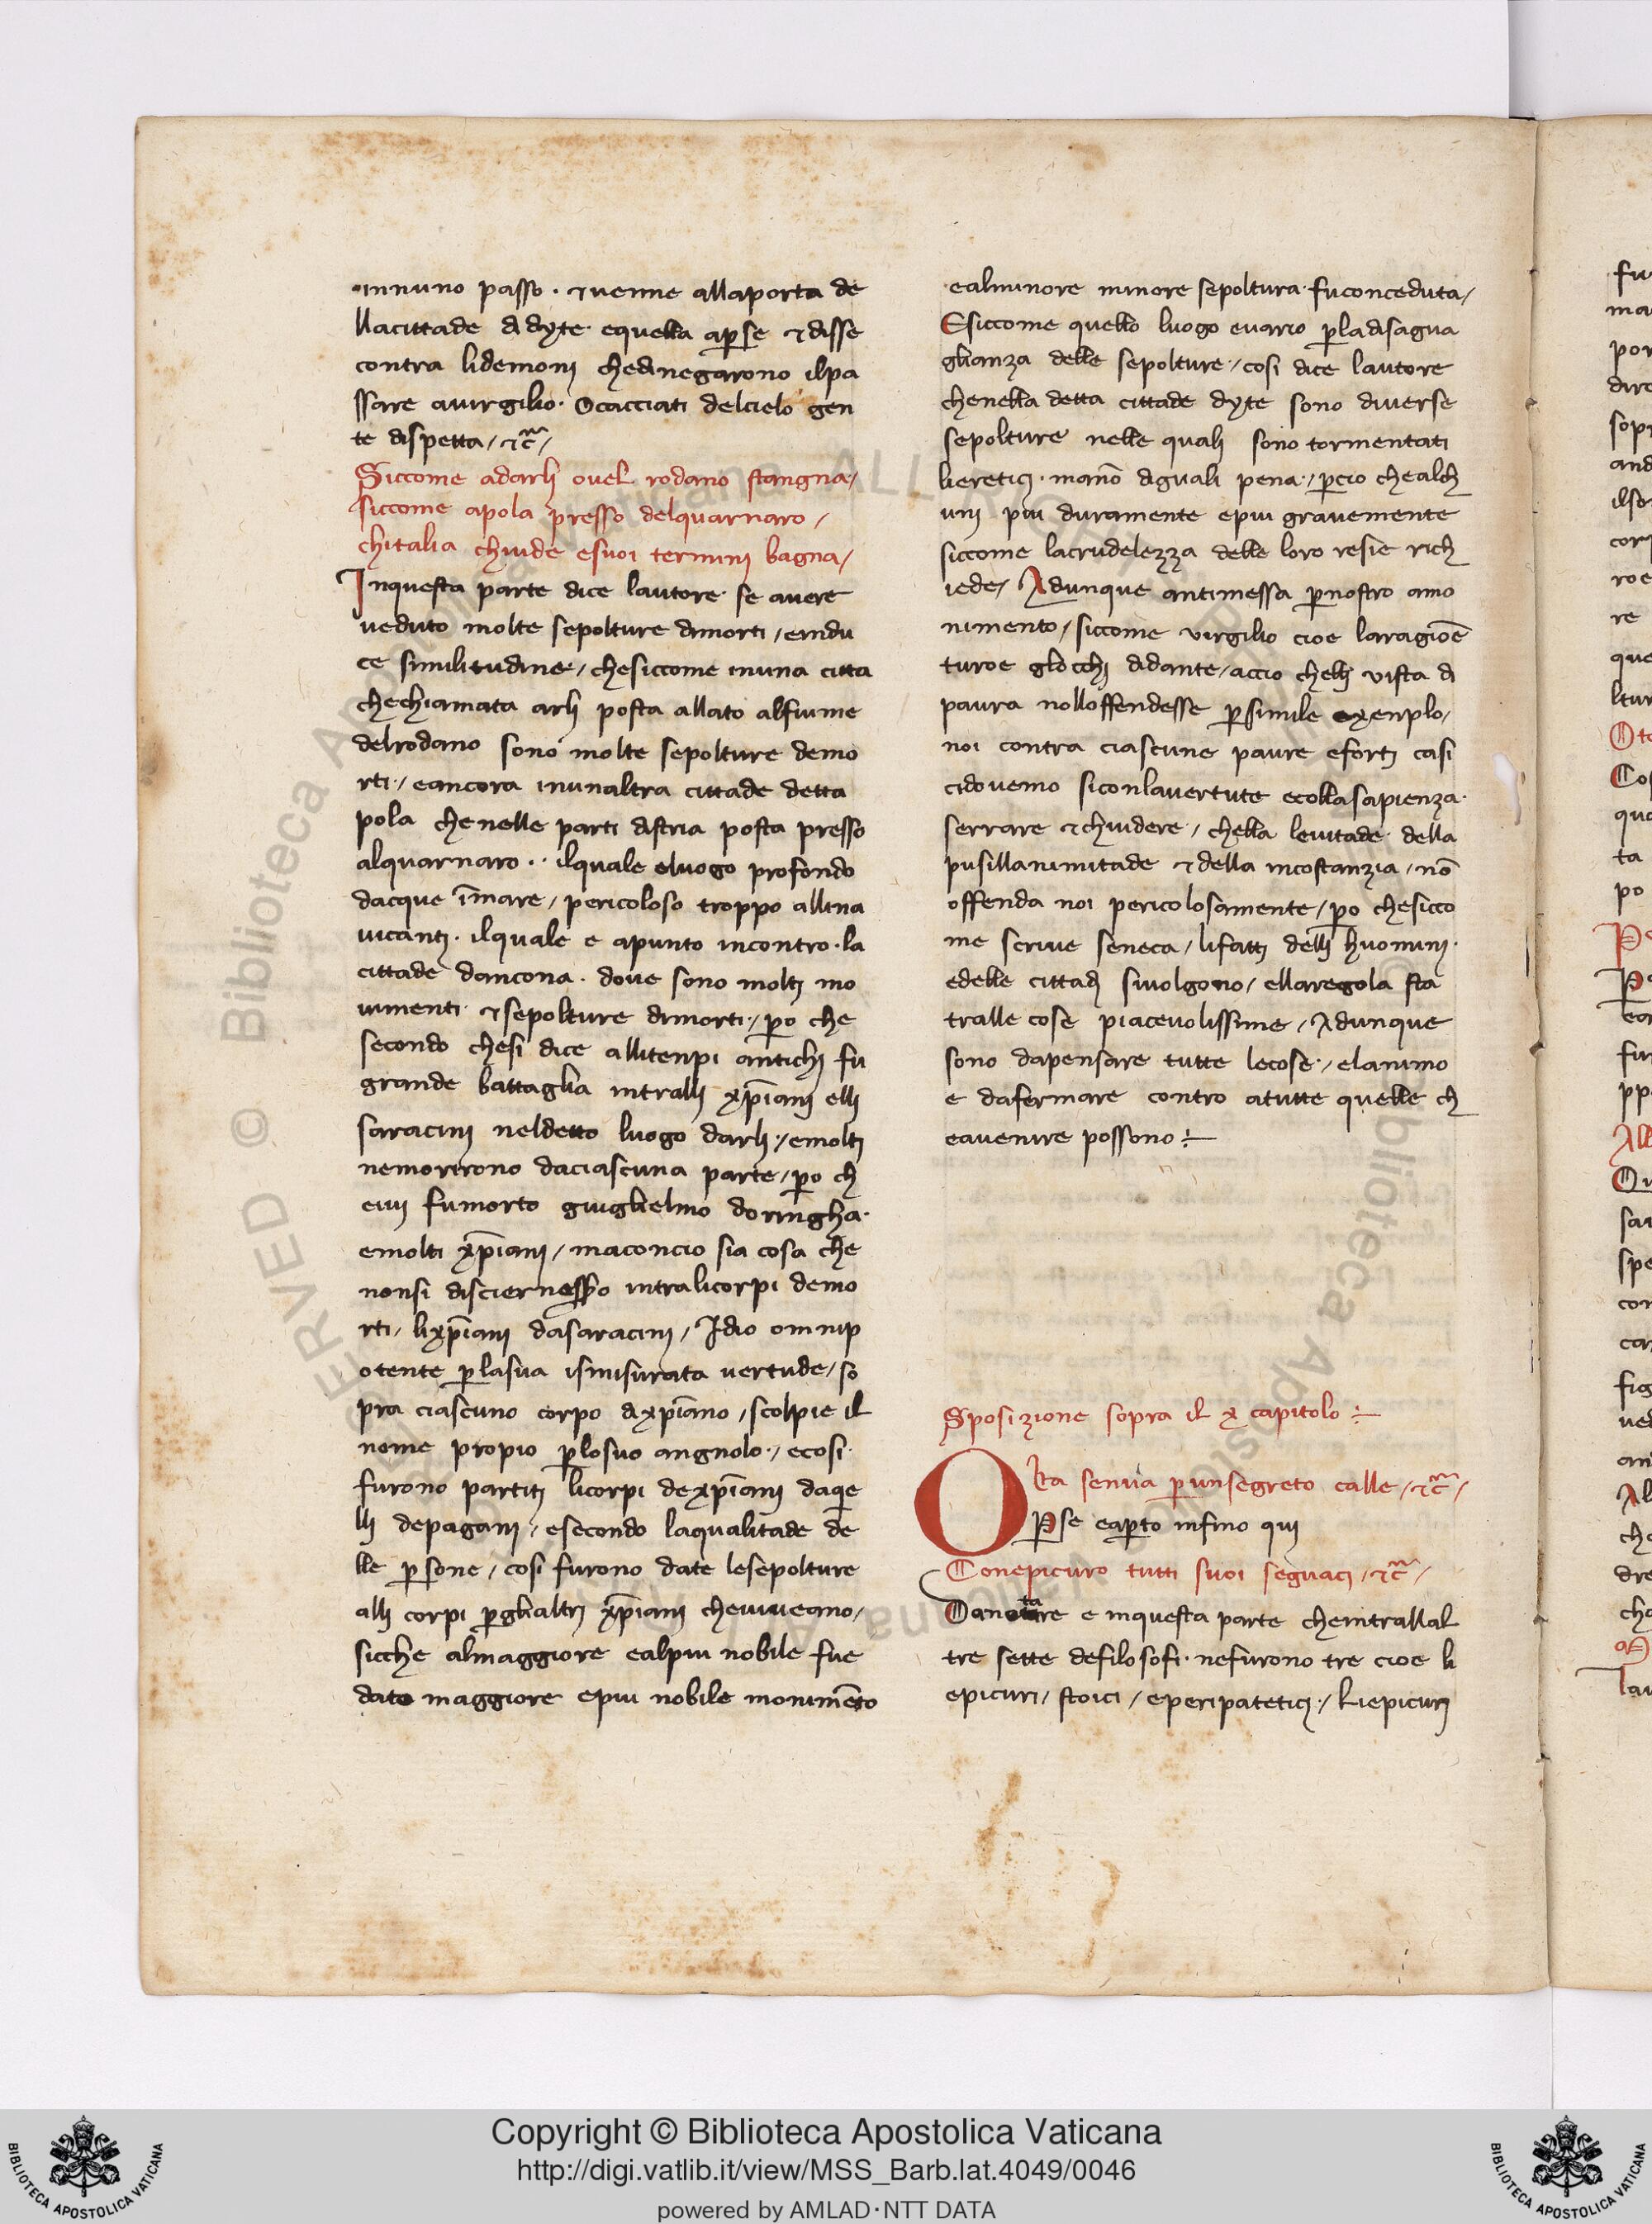 innuno passo · ⁊uenne allaporta de
llacittade d dyte · equella aꝑse ⁊ disse
contra lidemonj chedinegarono ilpa
ssare auirgilio · Ocacciati delcielo gen
te dispetta / ⁊c̃ /
Siccome adarlj ouel rodano stangna /
siccome apola presso delquarnaro /
chitalia chiude esuoi terminj bagna /
Inquesta parte dice lautore · se auere
ueduto molte sepolture dimorti / eindu
ce similitudine / chesiccome inuna citta
chechiamata arlj posta allato alfiume
delrodano sono molte sepolture demo
rti · / eancora inunaltra cittade detta
pola chenelle parti distria posta presso
alquarnaro · · ilquale eluogo profondo
dacque ĩmare / pericoloso troppo allina
uicantj · ilquale e apunto incontro · la
cittade dancona · dove sono moltj mo
uimenti · ⁊ sepolture dimorti · / ꝑo che
secondo chesi dice allitenpi antichj fu
grande battaglia intrallj xp̃ianj elli
saracinj neldetto luogo darlj · / emoltj
nemorirono daciascuna parte / ꝑo ch
eiuj fumorto guiglielmo doringha ·
emolti xp̃ianj / maconcio sia cosa che
nonsi disciernesso intralicorpi demo
rti / lixp̃ianj dasaracinj / Idio omnip
otente ꝑlasua ismisurata uertude / so
pra ciascuno corpo dixp̃iano / scolpie il
nome propio ꝑlosuo angnolo · / ecosi ·
furono partitj licorpi dexp̃ianj daque
lli depaganj · / esecondo laqualitade de
lle ꝑsone / cosi furono date lesepolture
alli corpi ꝑglialtrj xp̃ianj cheuiueano /
sicche almaggiore ealpiu nobile fue
dato maggiore epiu nobile monimẽto
ealminore minore sepoltura · fuconceduta /
Esiccome quello luogo euario ꝑladisagua
glianza delle sepolture · / cosi dice lautore
chenella detta cittade dyte sono diuerse
sepolture nelle qualj sono tormentati
lieretici · manõ diguali pena · / ꝑcio chealch
unj piu duramente epiu grauemente
siccome lacrudelezza delle loro resie rich
iede / Adunque antimessa ꝑnostro amo
nimento / siccome virgilio cioe laragiõe
turoe gliocchj didante / accio chelli vista di
paura nolloffendesse ꝑsimile exenplo /
noi contra ciascune paure efortj casi
cidouemo siconlauertute ecollasapienza ·
serrare ⁊chiudere / chella leuitade · della
pusillanimitade ⁊ della incostanzia / nõ
offenda noi pericolosamente / ꝑo chesicco
me scriue seneca / lifattj delli huominj ·
edelle cittadj siuolgono / ellaregola sta
tralle cose piaceuolissime / Adunque
sono dapensare tutte lecose · / elanimo
e dafermare contro atutte quelle ch
eauenire possono ÷
Sposizione sopra il x capitolo ÷
Ora senua ꝑunsegreto calle / ⁊c̃ /
Ꝑse eaꝑto infino quj
Conepicuro tutti suoi seguacj / ⁊c̃ /
Danotare e inquesta parte cheintrallal
tre sette defilosofi · nefurono tre cioe li
epicuri / stoici / eperipatetici · / Liepicurj
Copyright © Biblioteca Apostolica Vaticana
http://digi.vatlib.it/view/MSS_Barb.lat.4049/0046
powered by AMLAD · NTT DATA
BIBLIOTECA APOSTOLICA VATICANA
BIBLIOTECA APOSTOLICA VATICANA